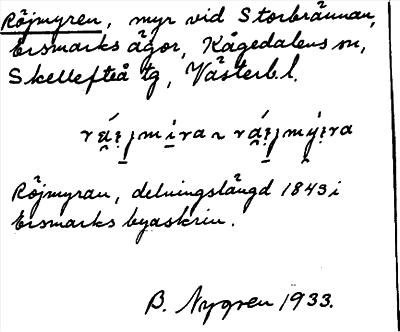 Röjmyren, myr vid Storbrännan,
Ersmarks ägor, Kågedalens sn,
Skellefteå tg, Västerb.l.
Röjmyran, delningslängd 1843 i
Ersmarks byaskrin.
B. Nygren 1933.